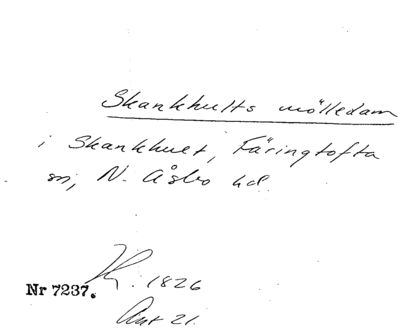 Skankhults mölledam
i Skankhult, Färingtofta
sn, N. Åsbo hd.
K. 1826
Nr 7237.
Ant 21.